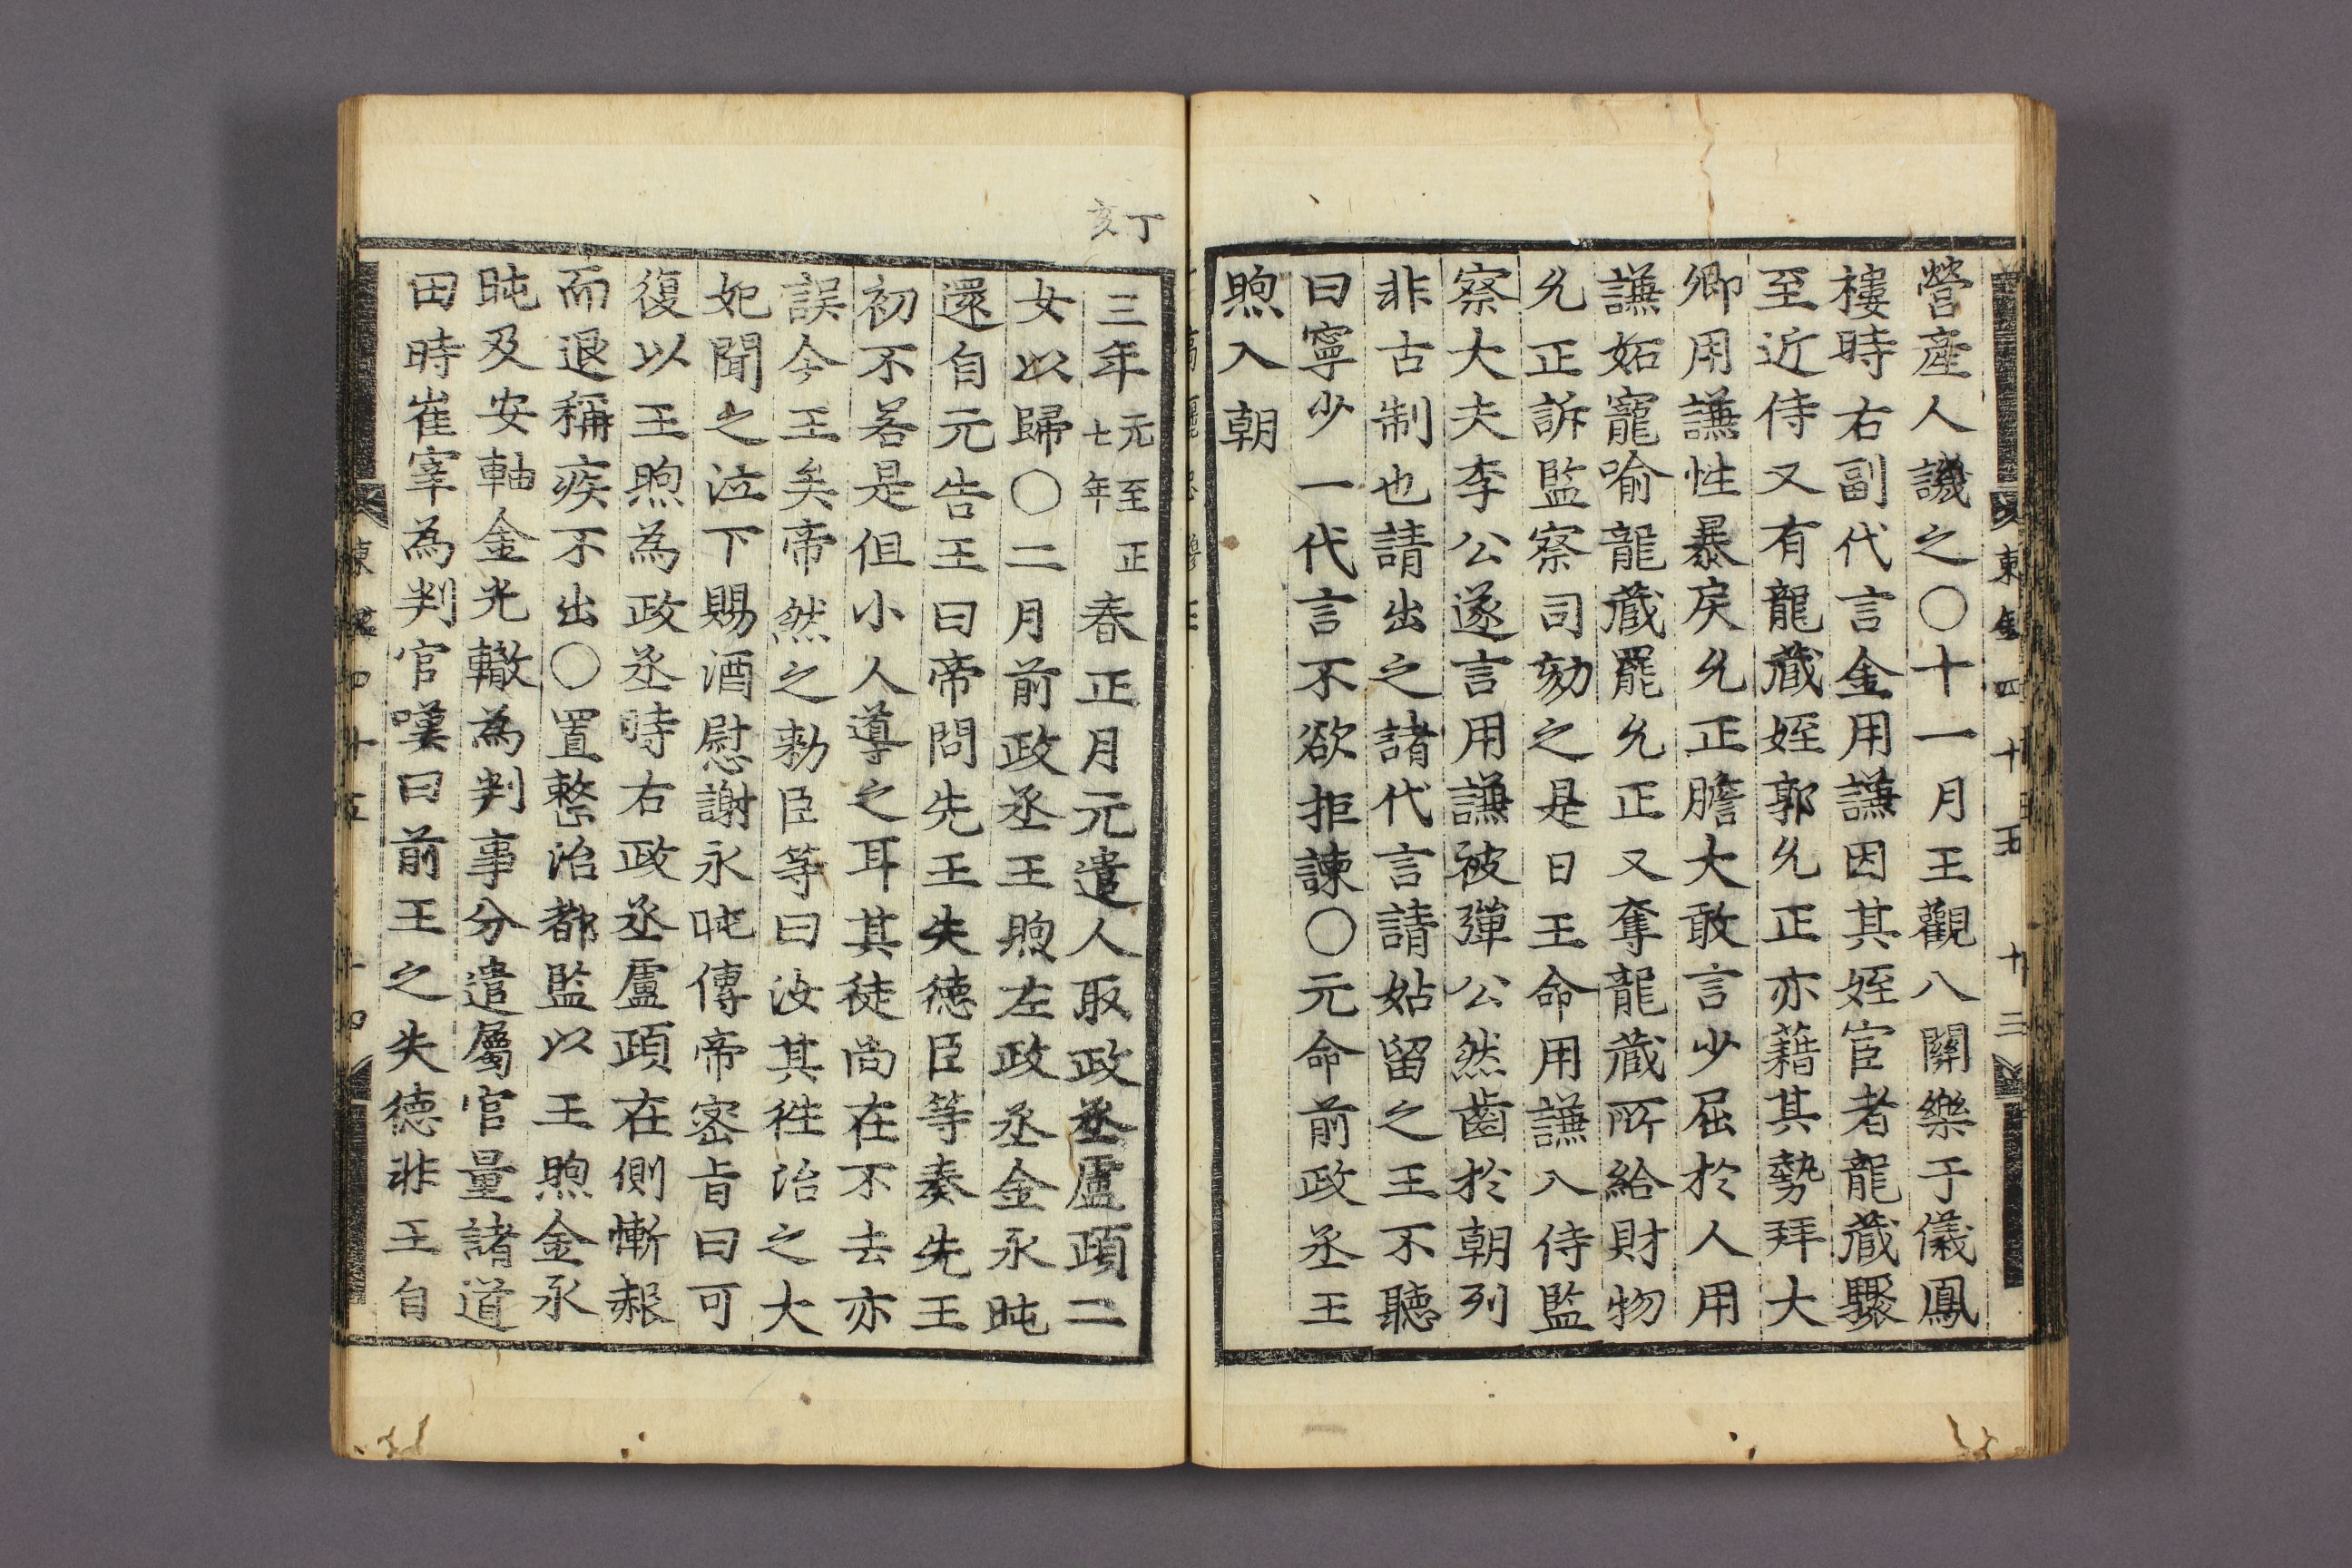 營產人譏之○十一月王觀八關樂于儀鳳
樓時右副代言金用謙因其姪宦者龍藏驟
至近侍又有龍藏姪郭允正亦藉其勢拜大
卿用謙性暴戾允正膽大敢言少屈於人用
謙妬寵喻龍藏罷允正又奪龍藏所給財物
允正訴監察司劾之是日王命用謙入侍監
察大夫李公遂言用謙被彈公然齒於朝列
非古制也請出之諸代言請姑留之王不聽
曰寧少一代言不欲拒諫○元命前政丞王
煦入朝
丁亥
三年元至正七年春正月元遣人取政丞盧頙二
女以歸○二月前政丞王煦左政丞金永旽
還自元告王曰帝問先王失德臣等奏先王
初不若是但小人導之耳其徒尚在不去亦
誤今王矣帝然之勑臣等曰汝其徃治之大
妃聞之泣下賜酒慰謝永旽傳帝密旨曰可
復以王煦為政丞時右政丞盧頙在側慚赧
而退稱疾不出○置整治都監以王煦金永
旽及安軸金光轍為判事分遣屬官量諸道
田時崔宰為判官嘆曰前王之失德非王自